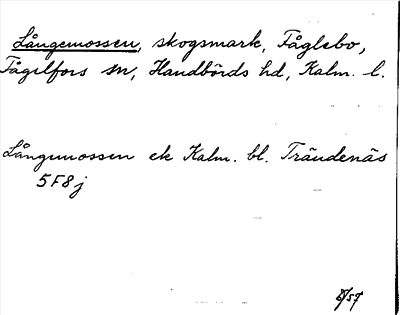 Långemossen, skogsmark, Fåglebo,
Fågelfors sn, Handbörds hd, Kalm. l.
Långemossen ek Kalm. bl. Träudenäs
5F8j